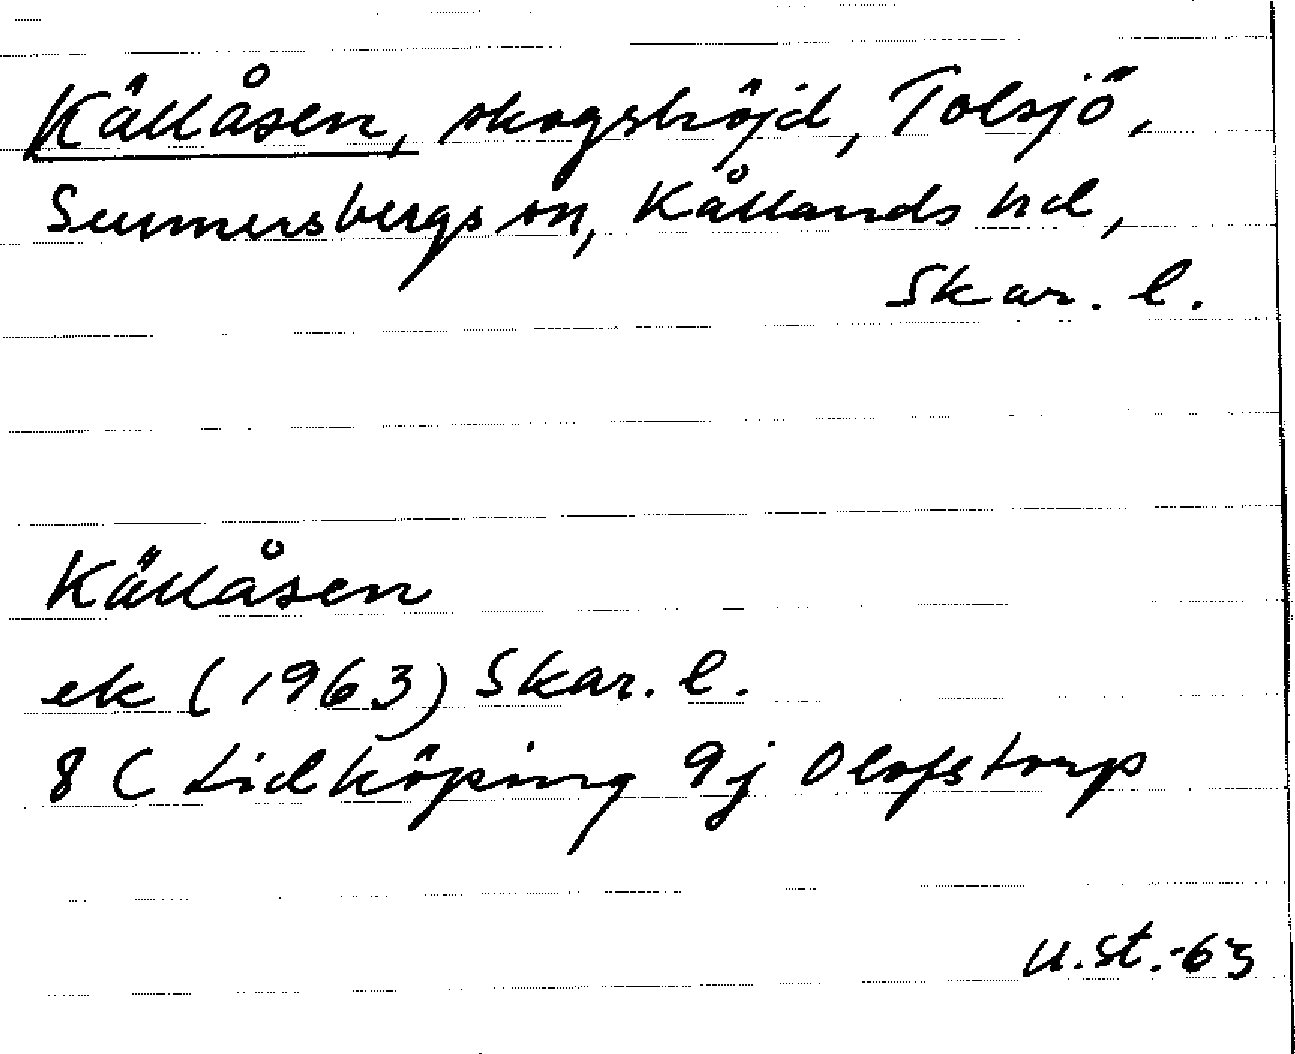 Källåsen, skogshöjd, Tolsjö,
Sunnersbergs sn, Kållands hd,
Skar. l.
Källåsen
ek (1963) Skar. l.
8 C Lidköping 9j Olofstorp
U.St.-63